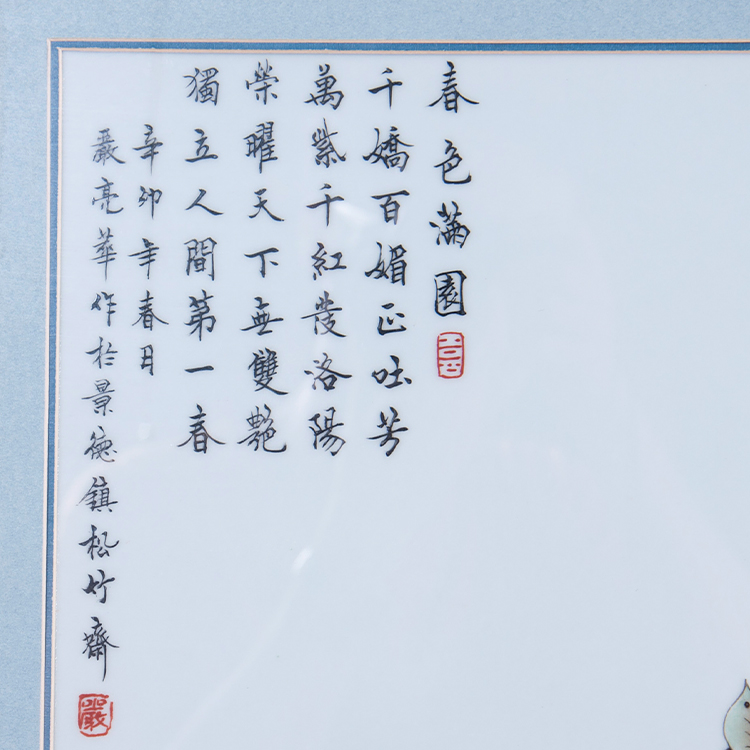 春色滿園
千嬌百媚正吐芳
萬紫千紅發洛陽
榮曜天下無雙艷
獨立人間第一春
辛卯年春月
嚴亮華作於景德鎮松竹齋
嚴